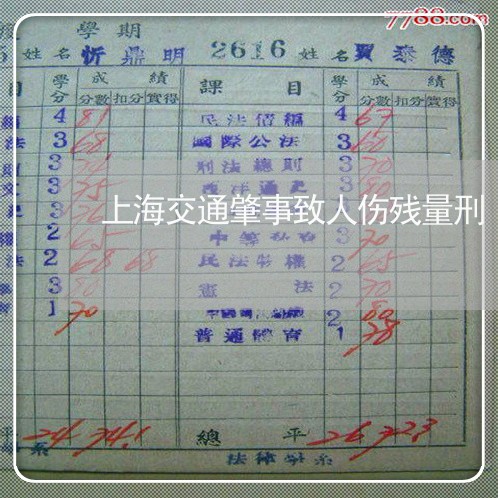 7788.com
學期
姓名 忻鼎明 2616 姓名 賈泰德
目 學分 成績 課目 學分 成績
分數 扣分 實得 分數 扣分 實得
4 81 民法債編 4 67
法 3 68 國際公法 3 60
3 刑法總則 3 70
3 75 西洋通史 3 80
上海交通肇事致人伤残量刑
2 65 3 70
法 2 68 68 民法物權 2 65
3 80 憲法 2 70
1 70 2 80
普通體育 1 78
平 24 74.1 總平 26 72.3
系 法律學系